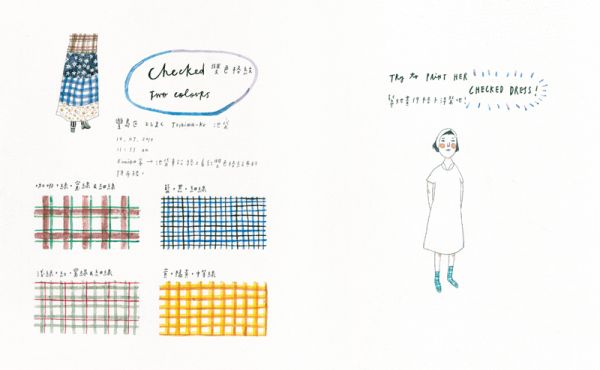 Checked 雙色格紋
two colours
豐島區 としまく Toshima-ku 池袋
咖啡・綠・寬線&細線
藍・黑・細線
淺綠・紅・寬線&細線
黃・橘黃・中等線
Try to PAINT HER
CHECKED DRESS!
幫她畫件格子洋裝吧!